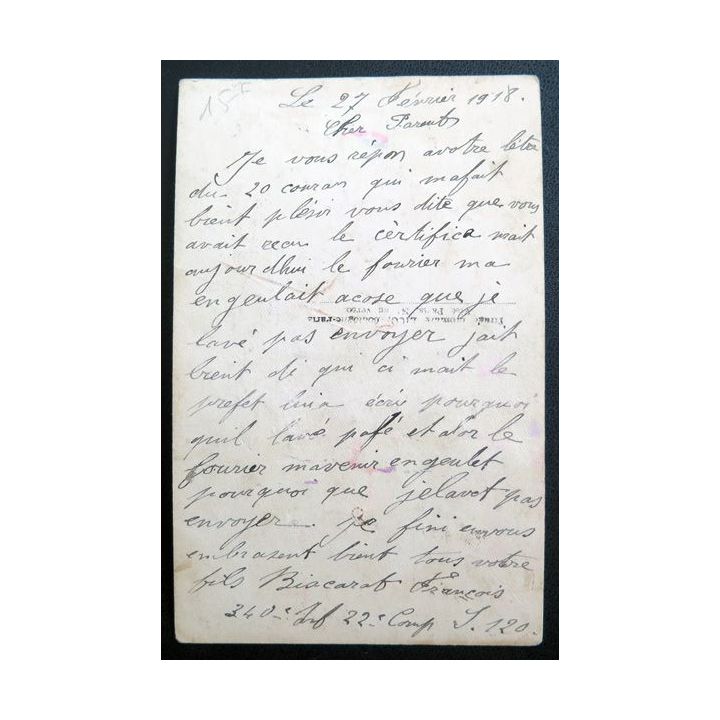 15 F
Le 27 Février 1918.
Cher Parents
Je vous répon avotre lêtre
du 20 couran qui mafait
bient plésir vous dite que vous
avait recu le cèrtifica mait
aujourdhui le fourier ma
engeulait acose que je
lavé pas envoyer jait
bient di qui ci mait le
prefet lui a écri pourquoi
quil lavé pafé et alor le
fourier mavenir engeulet
pourquoi que jelavet pas
envoyer. je fini envous
embrasent bient tous votre
fils Biscarat François
340e Inf 22e Comp S. 120.